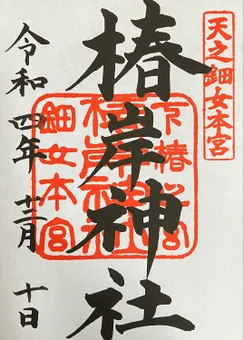 天之鈿女本宮
椿岸神社
椿岸神社
鈿女本宮
令和四年 十二月 十日